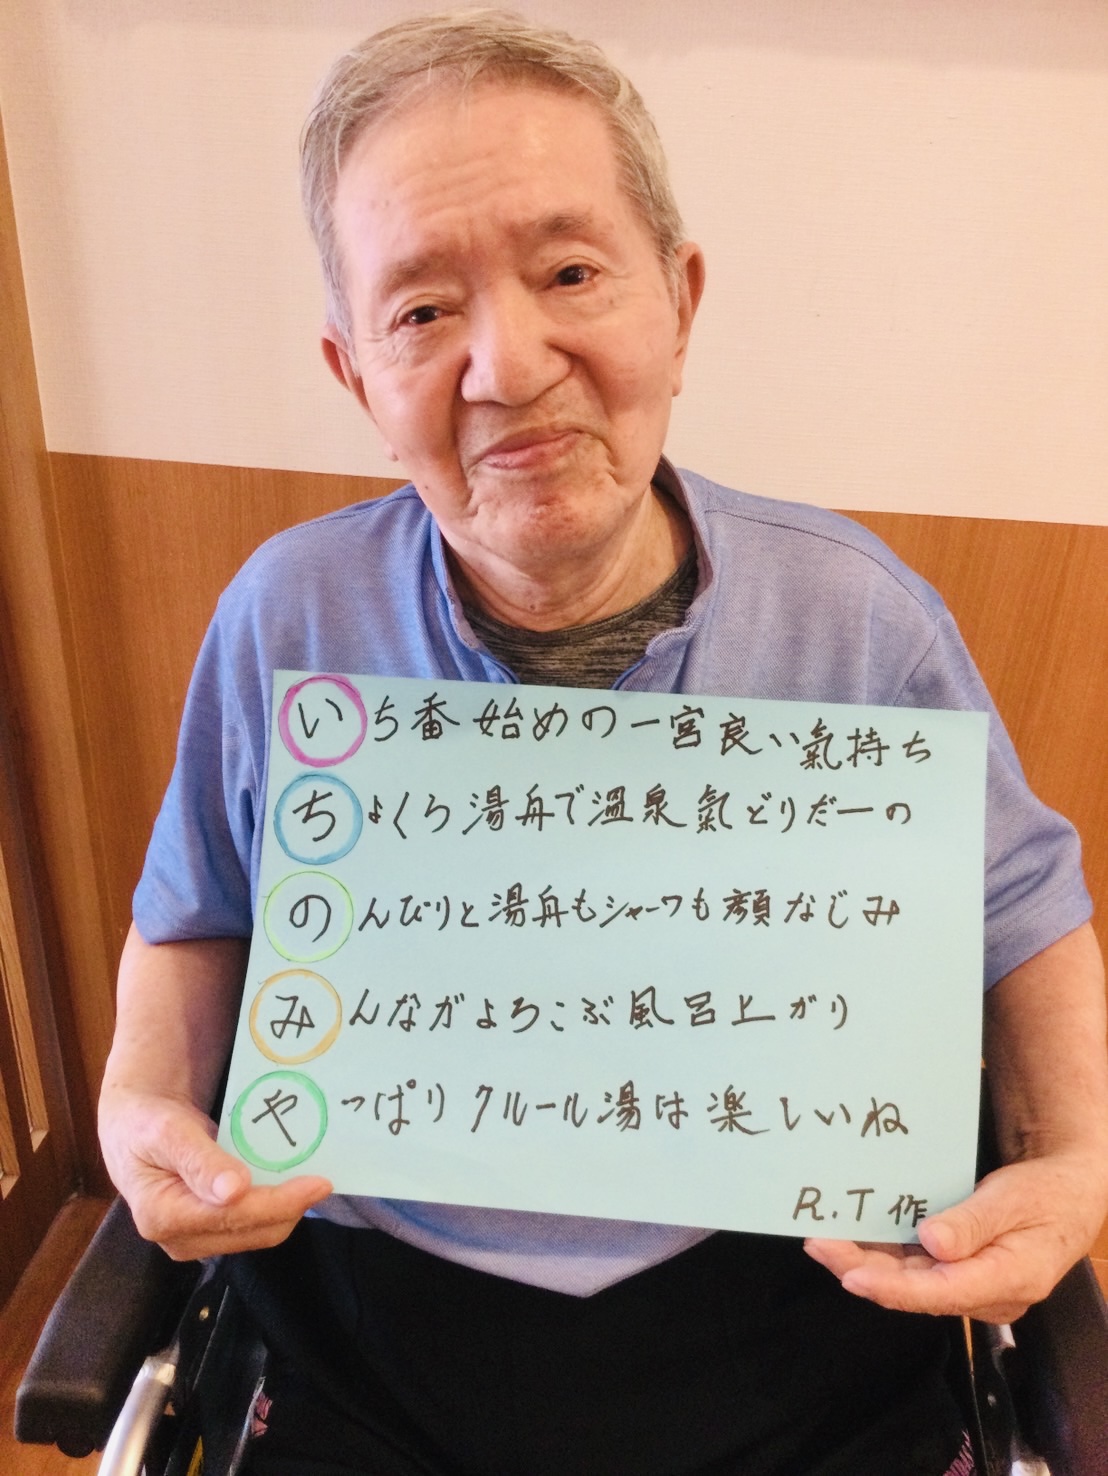 いち番始めの一宮良い氣持ち
ちょくら湯舟で温泉氣どりだーの
のんびりと湯舟もシャーワも顔なじみ
みんながよろこぶ風呂上がり
やっぱりクルール湯は楽しいね
R.T作